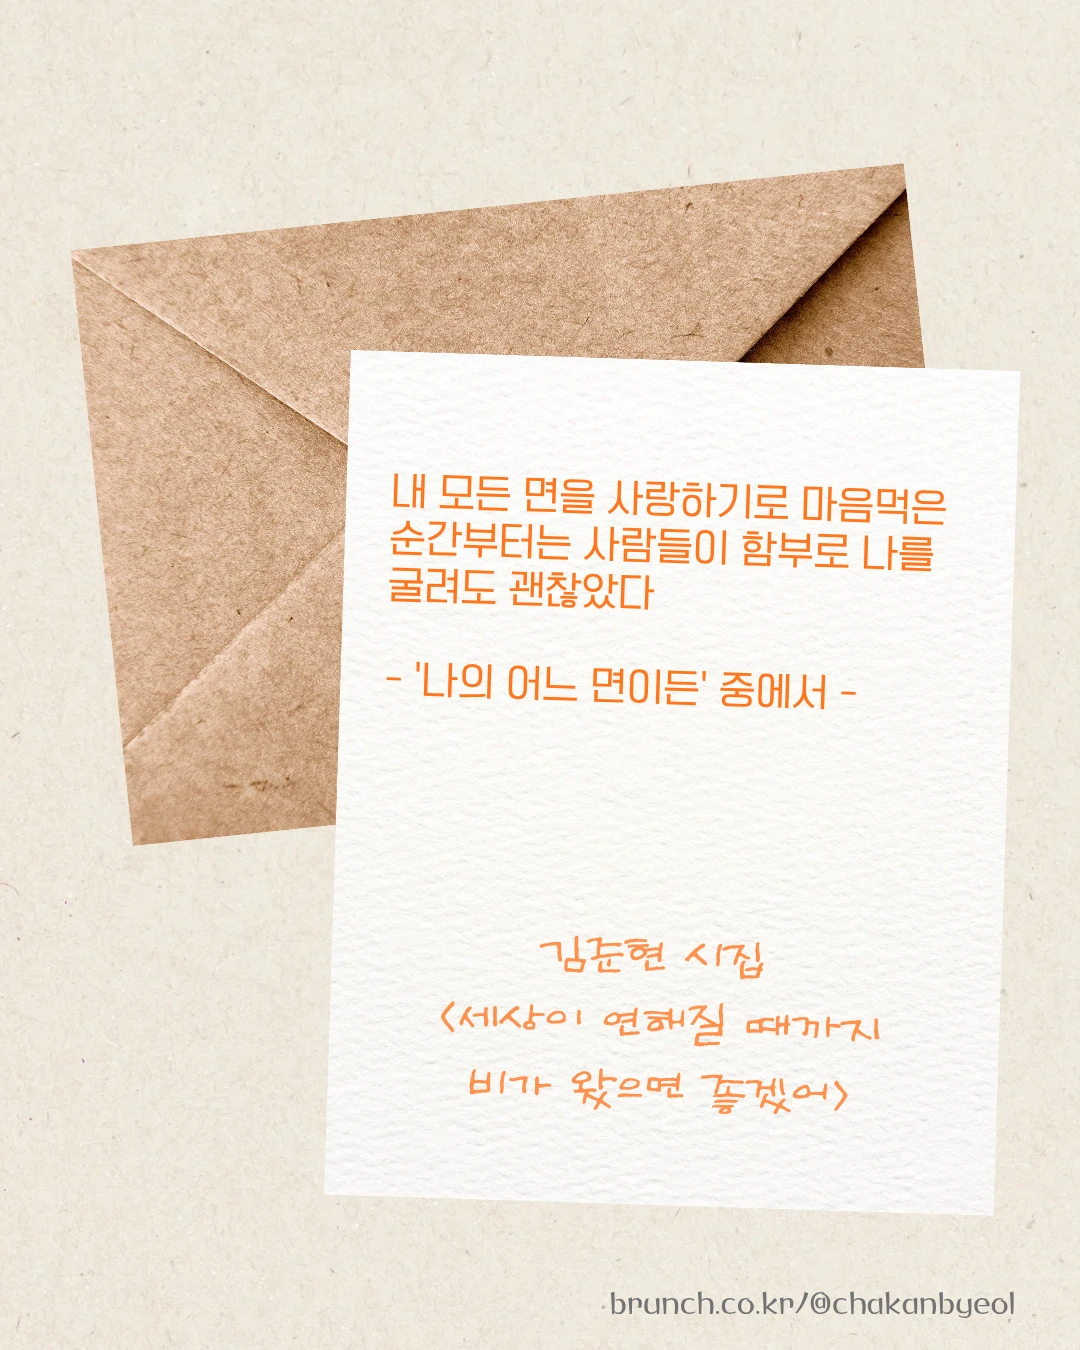 내 모든 면을 사랑하기로 마음먹은
순간부터는 사람들이 함부로 나를
굴려도 괜찮았다
- '나의 어느 면이든' 중에서 -
김준현 시집
<세상이 연해질 때까지
비가 왔으면 좋겠어>
brunch.co.kr/@chakanbyeol